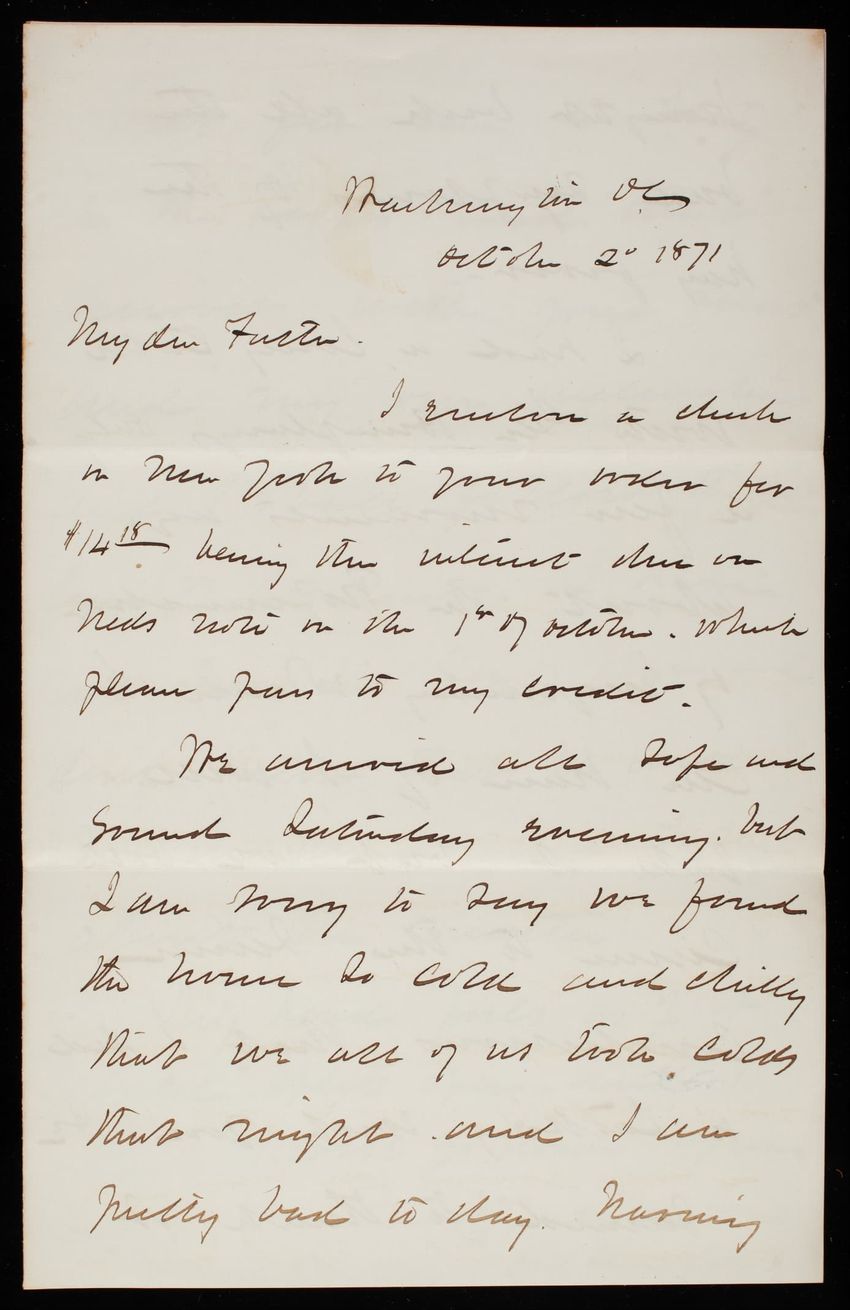 Washington DC
October 2d 1871
My dear Father.
I enclose a check
on New York to your order for
$14 18 being the interest due on
Neds note on the 1st of October. which
please pass to my credit.
We arrived all safe and
Sound Saturday evening. but
I am sorry to say we found
the house so cold and chilly
that we all of us took colds
that night and I am
pretty bad to day. Having